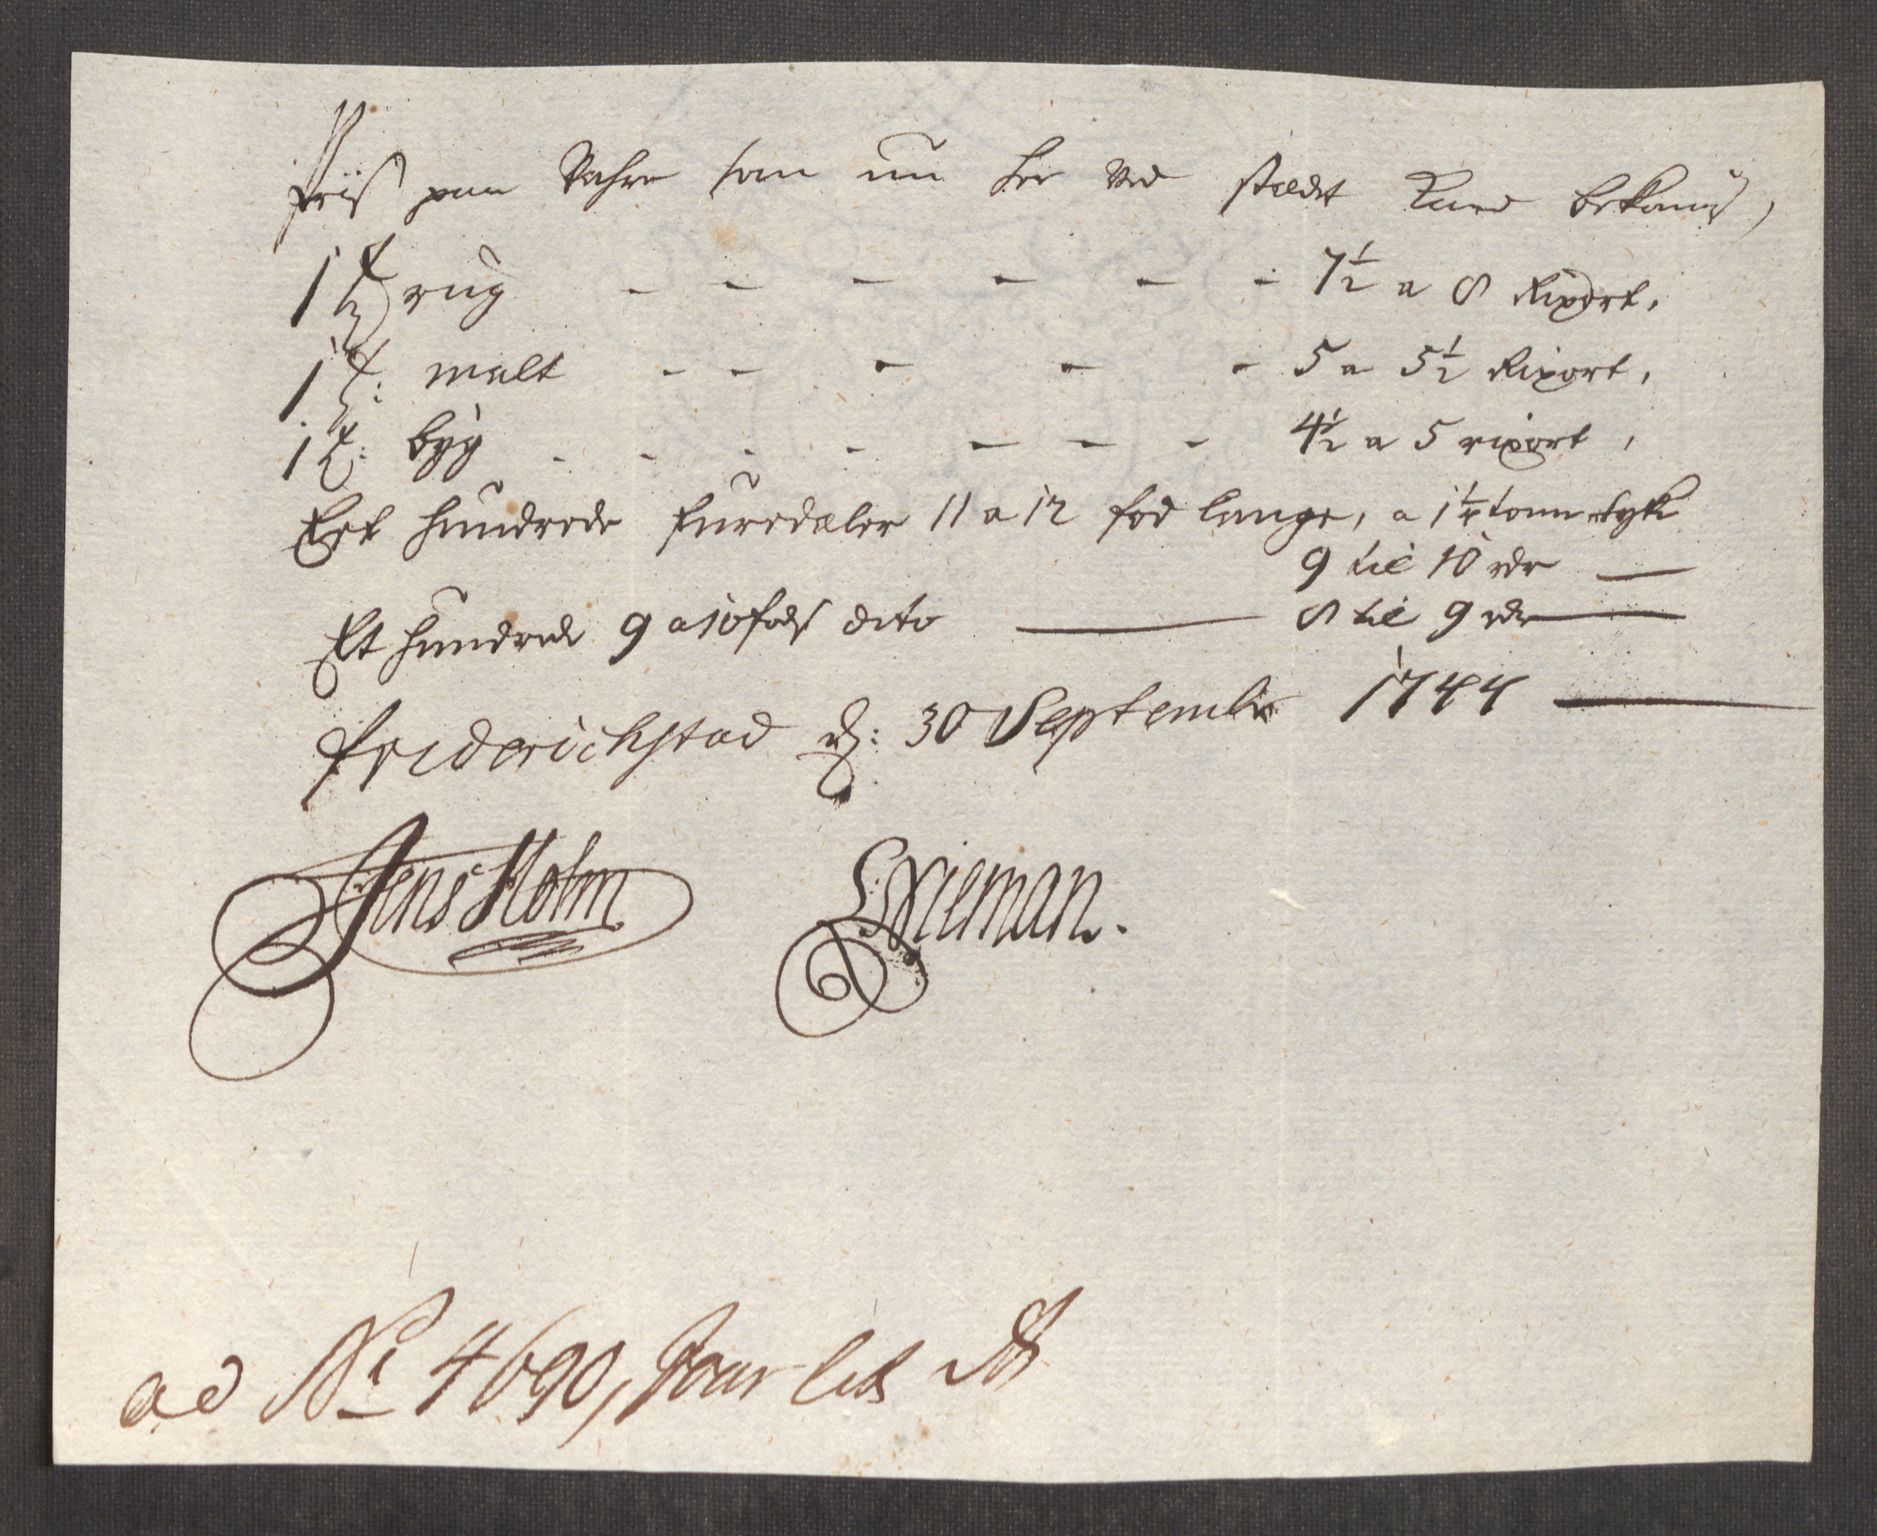 Priis paa Vahre som nu her ved stædet kand bekomis,
1 Td rug - - - - - - 7½ a 8 Rixort,
1 T: malt - - - - - 5 a 5½ Rixort,
1 T: byg - - - - - - - 4½ a 5 rixort,
Eet hundrede furedæler 11 a 12 fod lange, a 1¼ tom tyk
9 til 10 rdr —
Et hundrede 9 a 10 fods dito — 8 til 9 rdr —
Friderichstad d: 30 September 1744 —
Jens Holm
Nieman.
ad No 4690, Jour lit